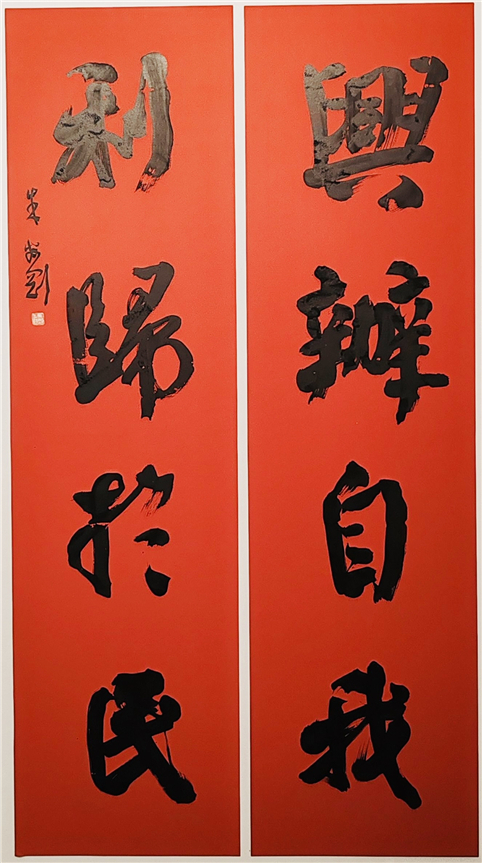 興辦自我
利歸於民